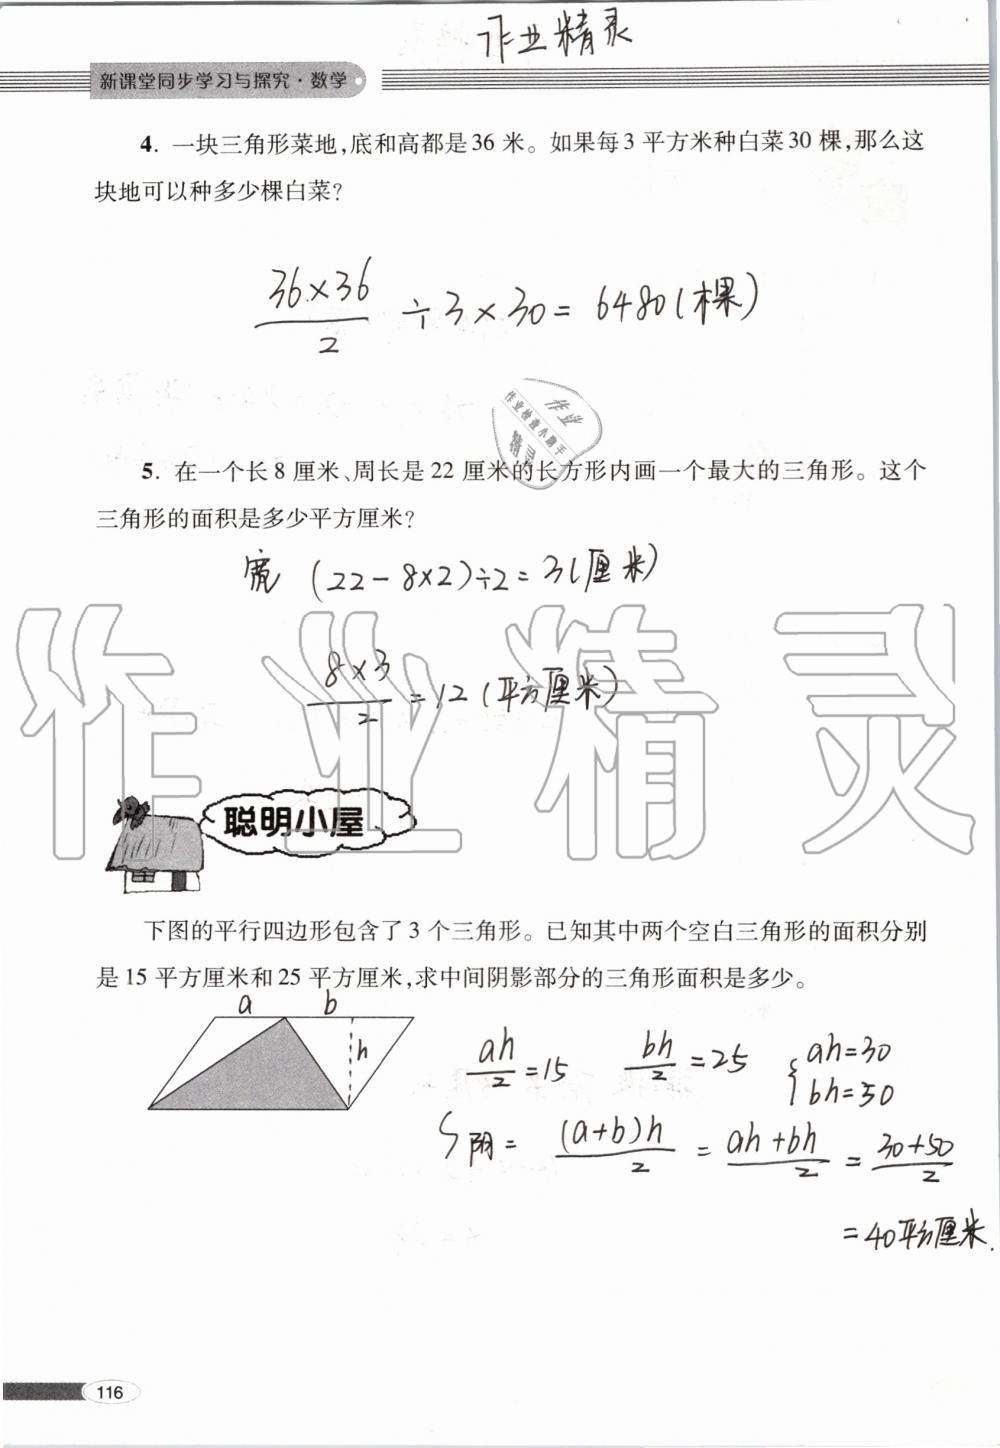 作业精灵
新课堂同步学习与探究·数学
4. 一块三角形菜地,底和高都是36 米。如果每3 平方米种白菜30 棵,那么这
块地可以种多少棵白菜?
36×36/2 ÷3×30=6480(棵)
作业
作业检查小助手
精灵
5. 在一个长8 厘米、周长是22 厘米的长方形内画一个最大的三角形。这个
三角形的面积是多少平方厘米?
宽 (22-8×2)÷2=3(厘米)
作业精灵
8×3/2=12(平方厘米)
聪明小屋
下图的平行四边形包含了3 个三角形。已知其中两个空白三角形的面积分别
是15 平方厘米和25 平方厘米,求中间阴影部分的三角形面积是多少。
a b
h
ah/2=15 bh/2=25 { ah=30
bh=50
S阴= (a+b)h/2 = ah+bh/2 = 30+50/2
=40平方厘米.
116